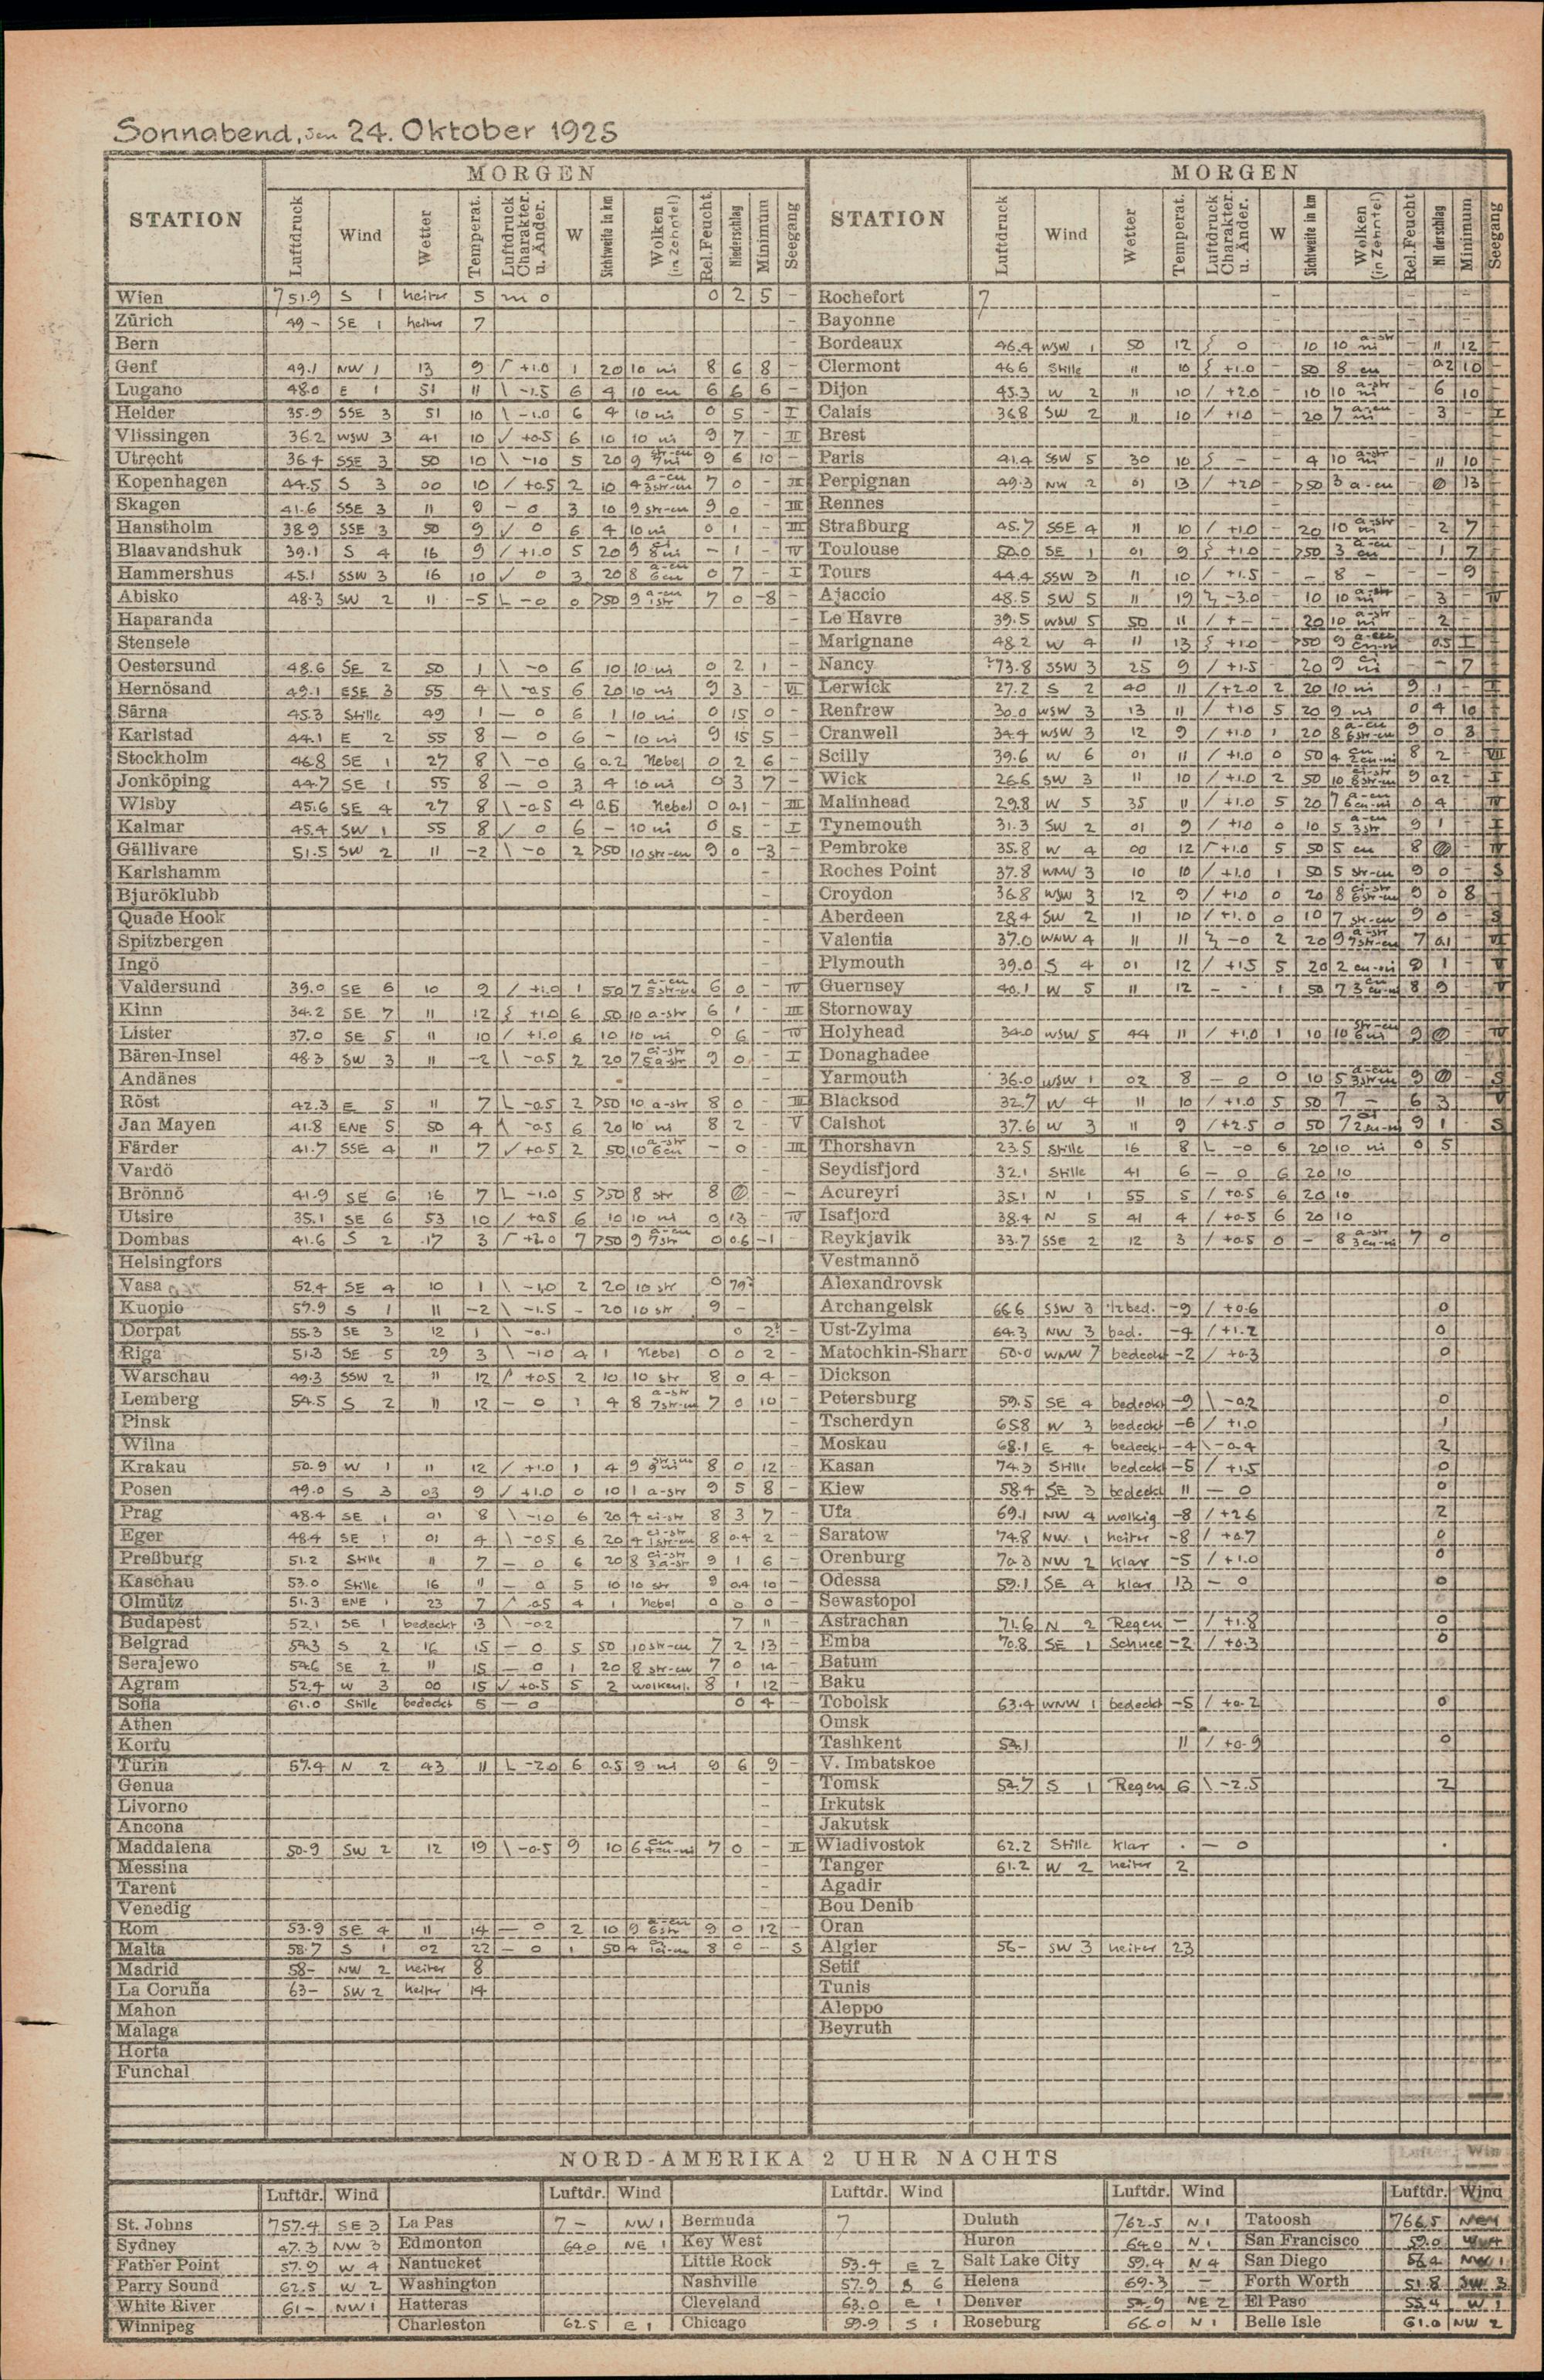 Sonnabend, den 24. Oktober 1925
STATION MORGEN STATION MORGEN
Luftdruck Wind Wetter Temperat. Luftdruck Charakter. u. Änder. W Sichtweite in km Wolken (in Zehntel) Rel. Feucht. Niederschlag Minimum Seegang
Luftdruck Wind Wetter Temperat. Luftdruck Charakter. u. Änder. W Sichtweite in km Wolken (in Zehntel) Rel. Feucht Minimum Seegang
Wien 751.9 S 1 heiter 5 0 0 2 5 – Rochefort 7
Zürich 49 – SE 1 heiter 7 – Bayonne
Bern – Bordeaux 46.4 WSW 1 50 12 0 – 10 10 a-str ni – 11 12 –
Genf 49.1 NW 1 13 9 +1.0 1 20 10 ni 8 6 8 – Clermont 46.6 Stille 11 10 +1.0 – 50 8 cu – 0.2 10 –
Lugano 48.0 E 1 51 11 \ -1.5 6 4 10 cu 6 6 6 – Dijon 45.3 W 2 11 10 / +2.0 10 10 a-str ni – 6 10 –
Helder 35.9 SSE 3 51 10 \ -1.0 6 4 10 ni 0 5 – I Calais 36.8 SW 2 11 10 / +1.0 – 20 7 a-cu ni – 3 – I
Vlissingen 36.2 WSW 3 41 10 √ +0.5 6 10 10 ni 9 7 – II Brest
Utrecht 36.4 SSE 3 50 10 \ -1.0 5 20 9 str-cu 7 ni 9 6 10 – Paris 41.4 SSW 5 30 10 – – 4 10 a-str ni – 11 10 –
Kopenhagen 44.5 S 3 00 10 / +0.5 2 10 4 a-cu 3 str-cu 7 0 – II Perpignan 49.3 NW 2 01 13 / +2.0 – >50 3 a-cu – 0 13 –
Skagen 41.6 SSE 3 11 9 – 0 3 10 9 str-cu 9 0 – III Rennes
Hanstholm 38.9 SSE 3 50 9 √ 0 6 4 10 ni 0 1 – III Straßburg 45.7 SSE 4 11 10 / +1.0 – 20 10 a-str ni – 2 7 –
Blaavandshuk 39.1 S 4 16 9 / +1.0 5 20 9 ci 8 ni – 1 – IV Toulouse 50.0 SE 1 01 9 +1.0 – >50 3 a-cu cu – 1 7 –
Hammershus 45.1 SSW 3 16 10 √ 0 3 20 8 a-cu 6 cu 0 7 – I Tours 44.4 SSW 3 11 10 / +1.5 – – 8 – – – 9 –
Abisko 48.3 SW 2 11 -5 L -0 0 >50 9 a-cu 1 str 7 0 -8 – Ajaccio 48.5 SW 5 11 19 -3.0 – 10 10 a-str ni – 3 – IV
Haparanda – Le Havre 39.5 WSW 5 50 11 / + – 20 10 a-str ni – 2 –
Stensele – Marignane 48.2 W 4 11 13 +1.0 – >50 9 a-cu cu-ni – 0.5
Oestersund 48.6 SE 2 50 1 \ -0 6 10 10 ni 0 2 1 – Nancy 73.8 SSW 3 25 9 / +1.5 – 20 9 ci ni – – 7 –
Hernösand 49.1 ESE 3 55 4 \ -0.5 6 20 10 ni 9 3 – VI Lerwick 27.2 S 2 40 11 / +2.0 2 20 10 ni 9 1 – I
Särna 45.3 Stille 49 1 – 0 6 1 10 ni 0 15 0 – Renfrew 30.0 WSW 3 13 11 / +1.0 5 20 9 ni 0 4 10 –
Karlstad 44.1 E 2 55 8 – 0 6 – 10 ni 9 15 5 – Cranwell 34.4 WSW 3 12 9 / +1.0 1 20 8 a-cu 6 str-cu 9 0 3 –
Stockholm 46.8 SE 1 27 8 \ -0 6 0.2 Nebel 0 2 6 – Scilly 39.6 W 6 01 11 / +1.0 0 50 4 cu 2 cu-ni 8 2 – VII
Jonköping 44.7 SE 1 55 8 – 0 3 4 10 ni 0 3 7 – Wick 26.6 SW 3 11 10 / +1.0 2 50 10 ci-str 8 str-cu 9 0.2 – I
Wisby 45.6 SE 4 27 8 \ -0.5 4 0.5 Nebel 0 0.1 – III Malinhead 29.8 W 5 35 11 / +1.0 5 20 7 a-cu 6 cu-ni 0 4 – IV
Kalmar 45.4 SW 1 55 8 √ 0 6 – 10 ni 0 5 – I Tynemouth 31.3 SW 2 01 9 / +1.0 0 10 5 a-cu 3 str 9 1 – I
Gällivare 51.5 SW 2 11 -2 \ -0 2 >50 10 str-cu 9 0 -3 – Pembroke 35.8 W 4 00 12 +1.0 5 50 5 cu 8 0 – IV
Karlshamm – Roches Point 37.8 WNW 3 10 10 / +1.0 1 50 5 str-cu 9 0 – S
Bjuröklubb – Croydon 36.8 WSW 3 12 9 / +1.0 0 20 8 ci-str 6 str-cu 9 0 8 –
Quade Hook – Aberdeen 28.4 SW 2 11 10 / +1.0 0 10 7 str-cu 9 0 – S
Spitzbergen – Valentia 37.0 WNW 4 11 11 -0 2 20 9 a-str 7 str-cu 7 0.1 – VI
Ingö – Plymouth 39.0 S 4 01 12 / +1.5 5 20 2 cu-ni 9 1 – V
Valdersund 39.0 SE 6 10 9 / +1.0 1 50 7 a-cu 5 str-cu 6 0 – IV Guernsey 40.1 W 5 11 12 – – 1 50 7 cu 3 cu-ni 8 9 – V
Kinn 34.2 SE 7 11 12 +1.0 6 50 10 a-str 6 1 – III Stornoway
Lister 37.0 SE 5 11 10 / +1.0 6 10 10 ni 0 6 – IV Holyhead 34.0 WSW 5 44 11 / +1.0 1 10 10 str-cu 6 ni 9 0 – IV
Bären-Insel 48.3 SW 3 11 -2 \ -0.5 2 20 7 ci-str 5 a-str 9 0 – I Donaghadee
Andänes – Yarmouth 36.0 WSW 1 02 8 – 0 0 10 5 a-cu 3 str-cu 9 0 – S
Röst 42.3 E 5 11 7 L -0.5 2 >50 10 a-str 8 0 – III Blacksod 32.7 W 4 11 10 / +1.0 5 50 7 – 6 3 V
Jan Mayen 41.8 ENE 5 50 4 -0.5 6 20 10 ni 8 2 – V Calshot 37.6 W 3 11 9 / +2.5 0 50 7 ci 2 cu-ni 9 1 S
Färder 41.7 SSE 4 11 7 √ +0.5 2 50 10 a-str 6 cu – 0 – III Thorshavn 23.5 Stille 16 8 L -0 6 20 10 ni 0 5
Vardö – Seydisfjord 32.1 Stille 41 6 – 0 6 20 10
Brönnö 41.9 SE 6 16 7 L -1.0 5 >50 8 str 8 0 – – Acureyri 35.1 N 1 55 5 / +0.5 6 20 10
Utsire 35.1 SE 6 53 10 / +0.5 6 10 10 ni 0 13 – IV Isafjord 38.4 N 5 41 4 / +0.5 6 20 10
Dombas 41.6 S 2 17 3 +2.0 7 >50 9 a-cu 7 str 0 0.6 -1 Reykjavik 33.7 SSE 2 12 3 / +0.5 0 – 8 a-str 3 cu-ni 7 0
Helsingfors Vestmannö
Vasa 52.4 SE 4 10 1 \ -1.0 2 20 10 str 0 Alexandrovsk
Kuopio 57.9 S 1 11 -2 \ -1.5 – 20 10 str 9 – Archangelsk 66.6 SSW 3 ½ bed. -9 / +0.6 0
Dorpat 55.3 SE 3 12 1 \ -0.1 0 2 – Ust-Zylma 64.3 NW 3 bed. / +1.2 0
Riga 51.3 SE 5 29 3 \ -1.0 4 1 Nebel 0 0 2 – Matochkin-Sharr 50.0 WNW 7 bedeckt -2 / +0.3 0
Warschau 49.3 SSW 2 11 12 / +0.5 2 10 10 str 8 0 4 – Dickson
Lemberg 54.5 S 2 11 12 – 0 1 4 8 a-str 7 str-cu 7 0 10 – Petersburg 59.5 SE 4 bedeckt -9 \ -0.2 0
Pinsk – Tscherdyn 65.8 W 3 bedeckt -6 / +1.0 1
Wilna – Moskau 68.1 E 4 bedeckt -4 \ -0.4 2
Krakau 50.9 W 1 11 12 / +1.0 1 4 9 8 0 12 – Kasan 74.3 Stille bedeckt -5 / +1.5 0
Posen 49.0 S 3 03 9 / +1.0 0 10 1 a-str 9 5 8 – Kiew 58.4 SE 3 bedeckt 11 – 0 0
Prag 48.4 SE 1 01 8 \ -1.0 6 20 4 ci-str 8 3 7 – Ufa 69.1 NW 4 wolkig -8 / +2.6 2
Eger 48.4 SE 1 01 4 \ -0.5 6 20 4 ci-str 1 str-cu 8 0.4 2 – Saratow 74.8 NW 1 heiter -8 / +0.7 0
Preßburg 51.2 Stille 11 7 – 0 6 20 8 ci-str 3 a-str 9 1 6 – Orenburg 70.3 NW 2 klar -5 / +1.0 0
Kaschau 53.0 Stille 16 11 – 0 5 10 10 str 9 0.4 10 – Odessa 59.1 SE 4 klar 13 – 0 0
Olmütz 51.3 ENE 1 23 7 -0.5 4 1 Nebel 0 0 0 – Sewastopol
Budapest 52.1 SE 1 bedeckt 13 \ -0.2 7 11 – Astrachan 71.6 N 2 Regen – / +1.8 0
Belgrad 54.3 S 2 16 15 – 0 5 50 10 str-cu 7 2 13 – Emba 70.8 SE 1 Schnee -2 / +0.3 0
Serajewo 54.6 SE 2 11 15 – 0 1 20 8 str-cu 7 0 14 – Batum
Agram 52.4 W 3 00 15 √ +0.5 5 2 wolkenl. 8 1 12 – Baku
Sofia 61.0 Stille bedeckt 5 – 0 0 4 – Tobolsk 63.4 WNW 1 bedeckt -5 / +0.2 0
Athen Omsk
Korfu Tashkent 54.1 11 / +0.9 0
Turin 57.4 N 2 43 11 L -2.0 6 0.5 9 ni 9 6 9 – V. Imbatskoe
Genua – Tomsk 52.7 S 1 Regen 6 \ -2.5 2
Livorno – Irkutsk
Ancona – Jakutsk
Maddalena 50.9 SW 2 12 19 \ -0.5 9 10 6 cu 4 cu-ni 7 0 – II Wladivostok 62.2 Stille klar . – 0 .
Messina – Tanger 61.2 W 2 heiter 2
Tarent – Agadir
Venedig – Bou Denib
Rom 53.9 SE 4 11 14 – 0 2 10 9 a-cu 6 str 9 0 12 – Oran
Malta 58.7 S 1 02 22 – 0 1 50 4 8 0 – S Algier 56 – SW 3 heiter 23
Madrid 58 – NW 2 heiter 8 Setif
La Coruña 63 – SW 2 heiter 14 Tunis
Mahon Aleppo
Malaga Beyruth
Horta
Funchal
NORD-AMERIKA 2 UHR NACHTS
Luftdr. Wind Luftdr. Wind Luftdr. Wind Luftdr. Wind Luftdr. Wind
St. Johns 757.4 SE 3 La Pas 7 – NW 1 Bermuda 7 Duluth 762.5 N 1 Tatoosh 766.5
Sydney 47.3 NW 3 Edmonton 64.0 NE 1 Key West Huron 64.0 N 1 San Francisco 59.0 W 4
Father Point 57.9 W 4 Nantucket Little Rock 53.4 E 2 Salt Lake City 59.4 N 4 San Diego 56.4 NW 1
Parry Sound 62.5 W 2 Washington Nashville 57.9 S 6 Helena 69.3 – Forth Worth 51.8 SW 3
White River 61 – NW 1 Hatteras Cleveland 63.0 E 1 Denver 54.9 NE 2 El Paso 55.4 W 1
Winnipeg Charleston 62.5 E 1 Chicago 59.9 S 1 Roseburg 66.0 N 1 Belle Isle 61.0 NW 2